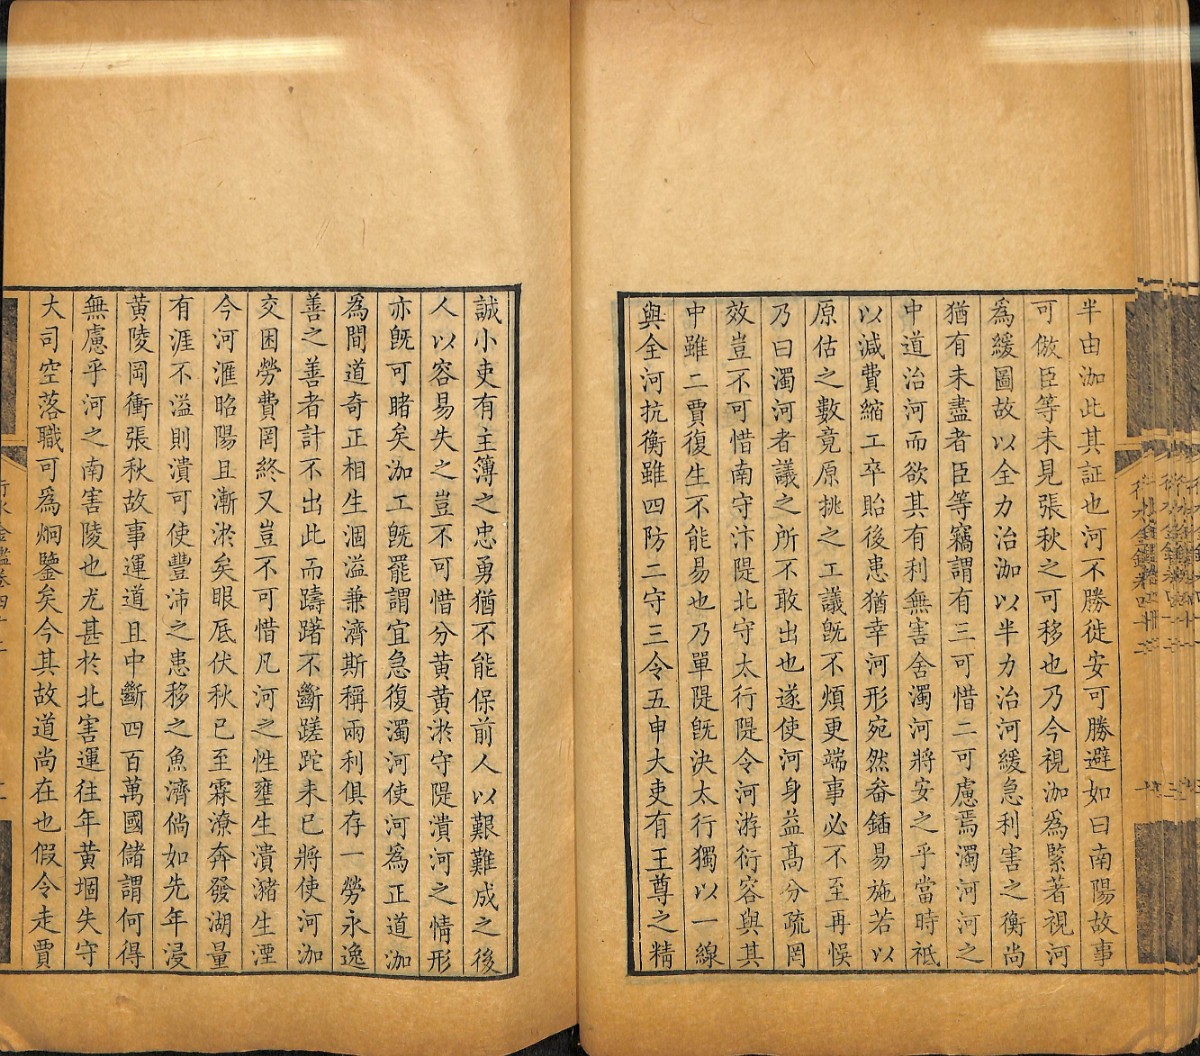 半由泇此其証也河不勝徙安可勝避如曰南陽故事
可倣臣等未見張秋之可移也乃今視泇為緊著視河
爲緩圖故以全力治泇以半力治河緩急利害之衡尚
猶有未盡者臣等竊謂有三可惜二可慮焉濁河河之
中道治河而欲其有利無害舍濁河將安之乎當時祗
以減費縮工卒貽後患猶幸河形宛然畚鍤易施若以
原估之數竟原挑之工議旣不煩更端事必不至再悞
乃曰濁河者議之所不敢出也遂使河身益髙分疏罔
效豈不可惜南守汴隄北守太行隄令河游衍容與其
中雖二賈復生不能易也乃單隄旣決太行獨以一線
與全河抗衡雖四防二守三令五申大吏有王尊之精
誠小吏有主簿之忠勇猶不能保前人以艱難成之後
人以容易失之豈不可惜分黃黃淤守隄潰河之情形
亦旣可睹矣泇工旣罷謂宜急復濁河使河爲正道泇
爲間道奇正相生涸溢兼濟斯稱兩利俱存一勞永逸
善之善者計不出此而躊躇不斷蹉跎未已將使河泇
交困勞費罔終又豈不可惜凡河之性壅生潰瀦生湮
今河滙昭陽且漸淤矣眼底伏秋已至霖潦奔發湖量
有涯不溢則潰可使豐沛之患移之魚濟倘如先年浸
黃陵岡衝張秋故事運道且中斷四百萬國儲謂何得
無慮乎河之南害陵也尤甚於北害運往年黃堌失守
大司空落職可爲炯鑒矣今其故道尚在也假令走賈
行水金鑑卷四十二